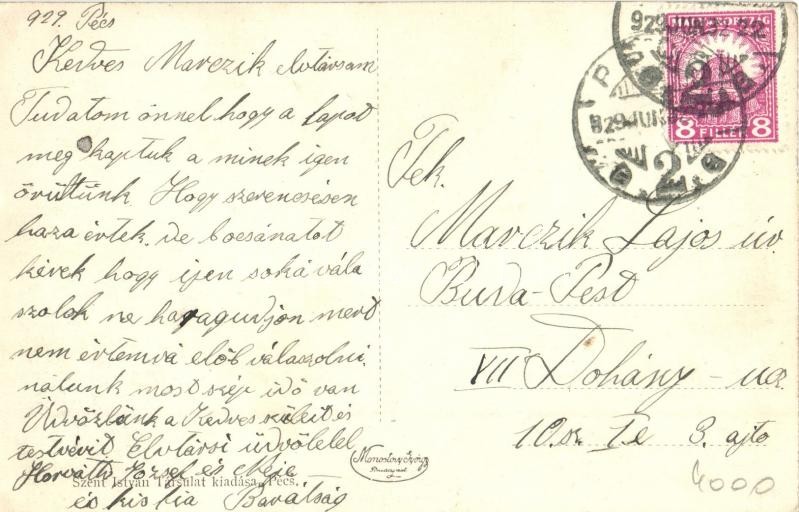 929. Pécs
Kedves Marczik elvtársam
Tudatom önnel hogy a lapot
meg kaptuk a minek igen
örültünk. Hogy szerencsésen
haza értek. de bocsánatot
kérek hogy ijen soká vála
szolok ne haragudjon mert
nem értem rá előb válaszolni.
nálunk most szép idő van
Üdvözlünk a Kedves szüleit és
testvérit Elvtársi üdvözlelel
Horváth József és Neje
és kis fia Barátság
Szent István Társulat kiadása, Pécs.
Monostory György
Budapest
929 JUN
929 JUN
2
8 FILLÉR 8
Tek.
Marczik Lajos úr
Buda-Pest
VII Dohány - ucz
10. sz. I e 3. ajto
4000